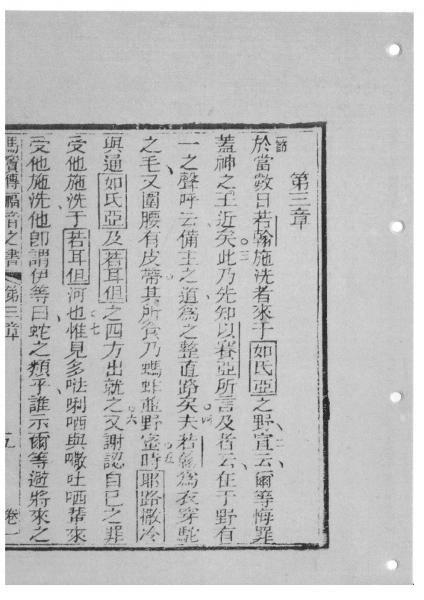 第三章
節
於當數日若翰施洗者來于如氏亞之野宣云爾等悔罪
蓋神之王近矣此乃先知以賽亞所言及者云在于野有
一之聲呼云備主之道為之整直路矣夫若翰為衣穿駝
之毛又圍腰有皮帶其所食乃螞蚱並野蜜時耶路撒冷
與逼如氏亞及若耳但之四方出就之又謝認自己之罪
受他施洗于若耳但河也惟見多𠵽唎哂與㘔吐哂輩來
受他施洗他即謂伊等曰蛇之類乎誰示爾等避將來之
馬竇傳福音之書 第三章 九 卷一